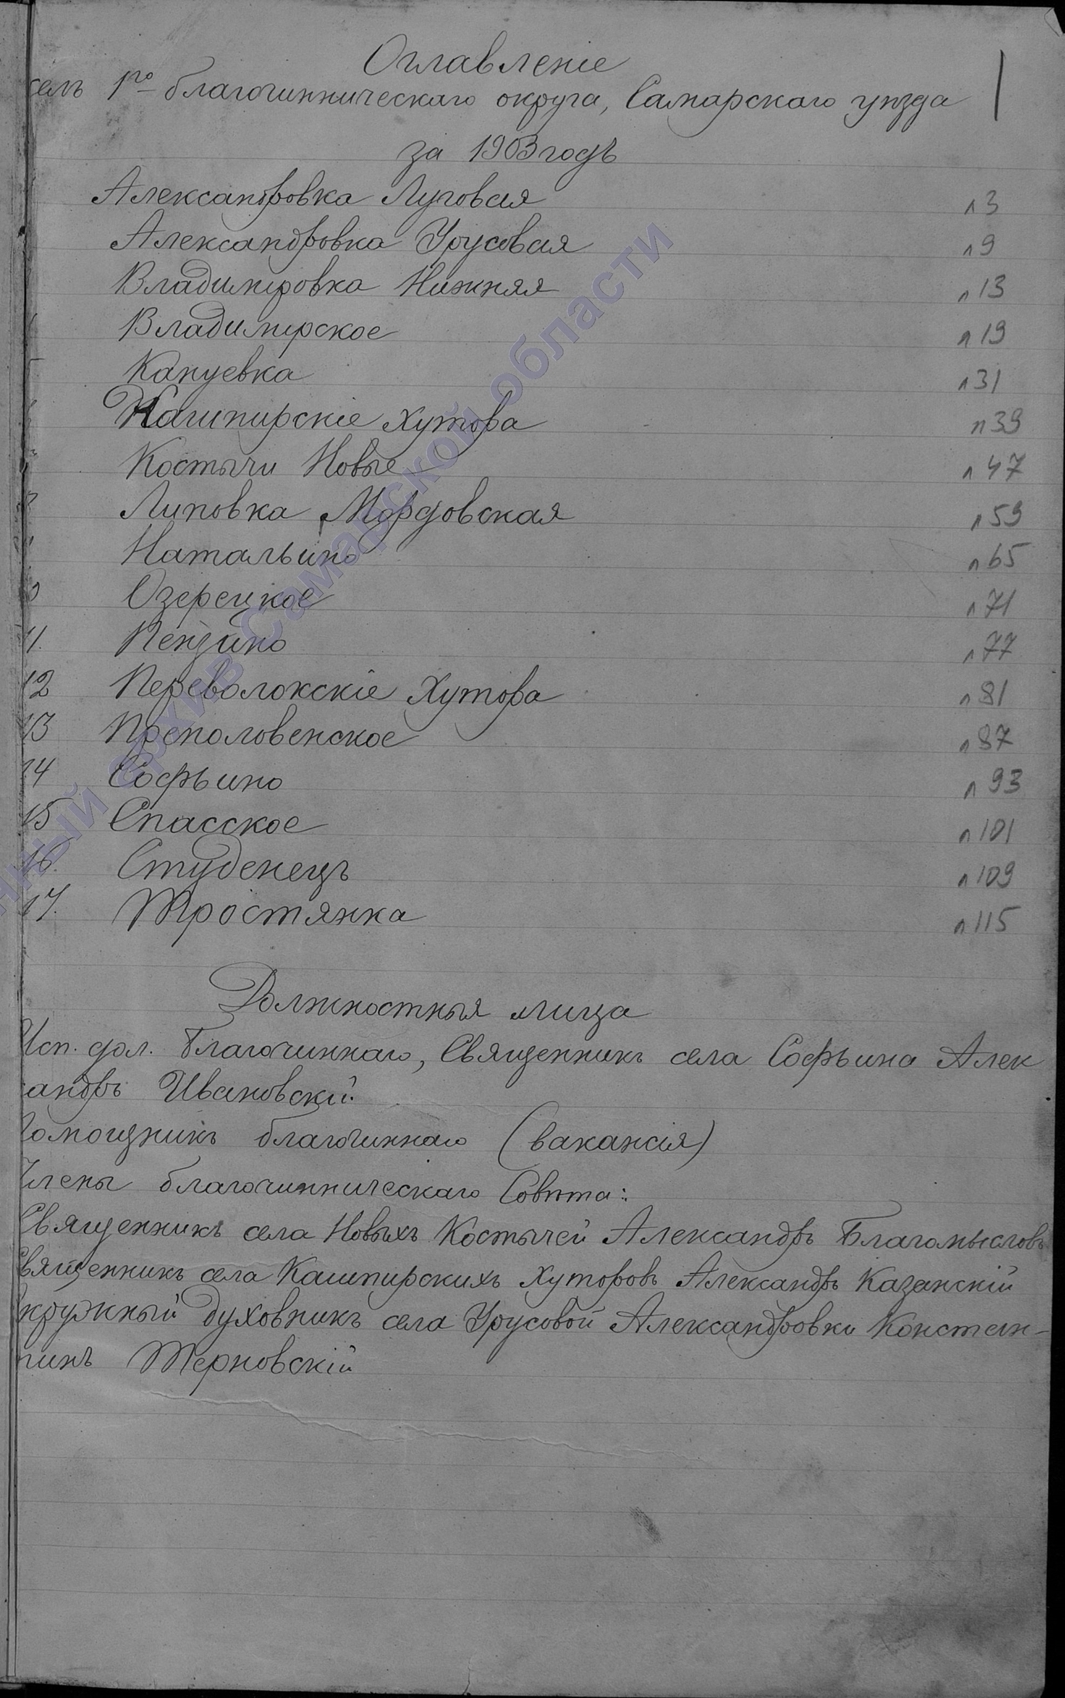 Оглавленіе
1
селъ 1го благочинническаго округа, Самарскаго уѣзда
за 1903 годъ
Александровка Луговая л 3
Александровка Урусовая л 9
Владиміровка Нижняя л 13
Владимірское л 19
Кануевка л 31
Кашпирскіе Хутора л 39
Костычи Новые л 47
Липовка Мордовская л 59
Натальино л 65
Озерецкое л 71
Пензино л 77
12 Переволокскіе Хутора л 81
13 Преполовенское л 87
14 Софьино л 93
15 Спасское л 101
16. Студенецъ л 109
17. Тростянка л 115
Должностныя лица
Исп. дол. Благочиннаго, Священникъ села Софьина Алек
сандръ Ивановскій.
Помощникъ благочиннаго (вакансія)
Члены благочинническаго Совѣта:
Священникъ села Новыхъ Костычей Александръ Благомысловъ
Священникъ села Кашпирскихъ Хуторовъ Александръ Казанскій
Окружный духовникъ села Урусовой Александровки Констан-
тинъ Терновскій
архив Самарской области